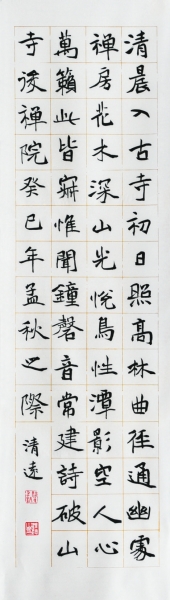 清晨入古寺初日照高林曲徑通幽處
禪房花木深山光悅鳥性潭影空人心
萬籟此皆寂惟聞鐘磬音常建詩破山
寺後禪院癸巳年孟秋之際清遠